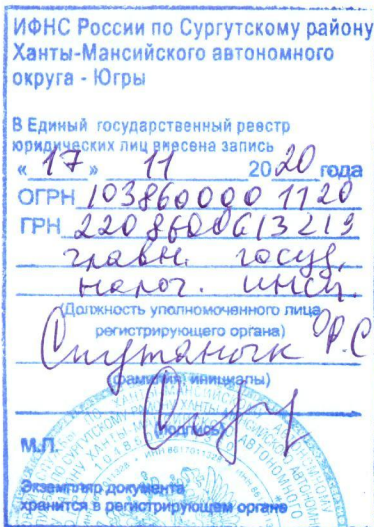 ИФНС России по Сургутскому району
Ханты-Мансийского автономного
округа - Югры
В Единый государственный реестр
юридических лиц внесена запись
« 17 » 11 20 20 года
ОГРН 1038600001120
ГРН 2208600613219
главн. госуд.
налог. инсп.
(Должность уполномоченного лица
регистрирующего органа)
Р.С
(фамилия, инициалы)
(подпись)
М.П.
Экземпляр документа
хранится в регистрирующем органе